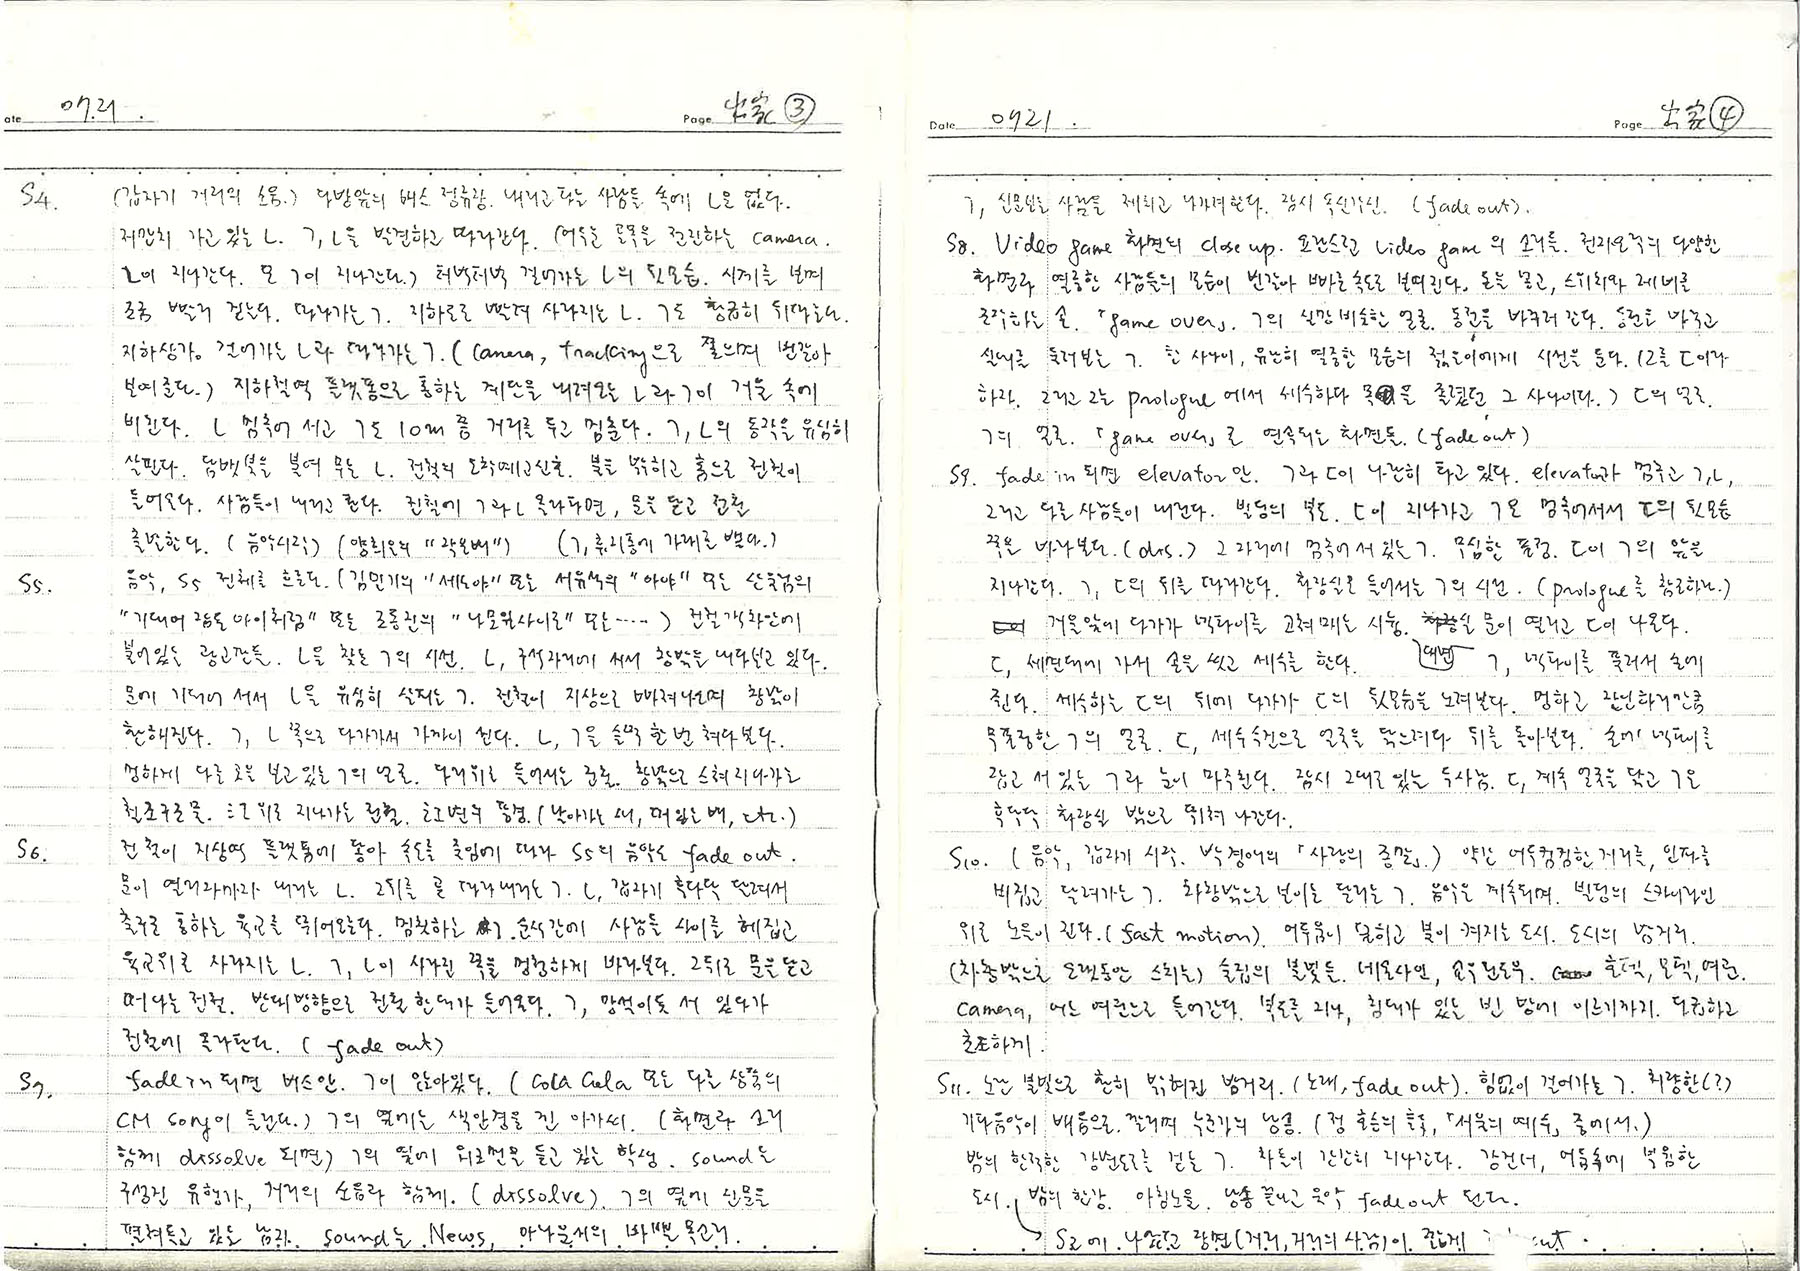 ate 07.21.
Page 出家 ③
S4. (갑자기 거리의 소음.) 다방앞의 버스 정류장. 내리고 타는 사람들 속에 L은 없다.
저만치 가고 있는 L. ㄱ, L을 발견하고 따라간다. (어두운 골목을 전진하는 camera.
L이 지나간다. 또 ㄱ이 지나간다.) 터벅터벅 걸어가는 L의 뒷모습. 시계를 보며
조금 빨리 걷는다. 따라가는 ㄱ. 지하도로 빨려 사라지는 L. ㄱ도 황급히 뒤따른다.
지하상가. 걸어가는 L과 따라가는 ㄱ. (camera, tracking으로 쫓으며 번갈아
보여준다.) 지하철역 플랫폼으로 통하는 계단을 내려오는 L과 ㄱ이 거울 속에
비친다. L 멈추어 서고 ㄱ도 10m 쯤 거리를 두고 멈춘다. ㄱ, L의 동작을 유심히
살핀다. 담뱃불을 붙여 무는 L. 전철의 도착예고신호. 불을 밝히고 홈으로 전철이
들어온다. 사람들이 내리고 탄다. 전철에 ㄱ과 L 올라타면, 문을 닫고 전철
출발한다. (음악시작) (양희은의 "작은배") (ㄱ, 휴지통에 가래를 뱉다.)
S5. 음악, S5 전체를 흐른다. (김민기의 "세노야" 또는 서유석의 "아야" 또는 산울림의
"기대어 잠든 아이처럼" 또는 조동진의 "나뭇잎사이로" 또는 ‥‥‥) 전철객차안에
붙어있는 광고판들. L을 찾는 ㄱ의 시선. L, 구석자리에 서서 창밖을 내다보고 있다.
문에 기대어 서서 L을 유심히 살피는 ㄱ. 전철이 지상으로 빠져나오며 창밖이
환해진다. ㄱ, L 쪽으로 다가가서 가까이 선다. L, ㄱ을 슬쩍 한번 쳐다본다.
멍하게 다른 곳을 보고 있는 ㄱ의 얼굴. 다리위로 들어서는 전철. 창밖으로 스쳐지나가는
철조구조물. 한강 위로 지나가는 전철. 한강변의 풍경. (날아가는 새, 떠있는 배, etc.)
S6. 전철이 지상역 플랫폼에 닿아 속도를 줄임에 따라 S5의 음악도 fade out.
문이 열리자마자 내리는 L. 그뒤를 곧 따라내리는 ㄱ. L, 갑자기 후다닥 달려서
출구로 통하는 육교를 뛰어오른다. 멈칫하는 ㄱ. 순식간에 사람들 사이를 헤집고
육교위로 사라지는 L. ㄱ, L이 사라진 쪽을 멍청하게 바라본다. 그뒤로 문을 닫고
떠나는 전철. 반대방향으로 전철 한대가 들어온다. ㄱ, 망석이듯 서 있다가
전철에 올라탄다. (fade out)
S7. fade in 되면 버스안. ㄱ이 앉아있다. (Cola Cola 또는 다른 상품의
CM song이 들린다.) ㄱ의 옆에는 색안경을 낀 아가씨. (화면과 소리
함께 dissolve 되면) ㄱ의 옆에 회초리를 들고 있는 학생. sound는
구성진 유행가, 거리의 소음과 함께. (dissolve). ㄱ의 옆에 신문을
펼쳐들고 있는 남자. sound는 News, 아나운서의 바쁜 목소리.
Date 0721.
Page 出家 ④
ㄱ, 신문보는 사람을 제치고 나가려한다. 잠시 옥신각신. (fade out).
S8. Video game 화면의 close up. 요란스런 video game의 소리들. 전자오락의 다양한
화면과 열중한 사람들의 모습이 번갈아 빠른속도로 보여진다. 돈을 넣고, 스위치와 레버를
조작하는 손. 「game over」. ㄱ의 실망 비슷한 얼굴. 동전을 바꾸러 간다. 동전을 바꾸고
실내를 둘러보는 ㄱ. 한 사나이, 유난히 열중한 모습의 젊은이에게 시선을 둔다. (그를 C이라
하자. 그리고 그는 prologue에서 세수하다 목을 졸렸던 그 사나이다.) C의 얼굴.
ㄱ의 얼굴. 「game over」로 연속되는 화면들. (fade out)
S9. fade in 되면 elevator안. ㄱ과 C이 나란히 타고 있다. elevator가 멈추고 ㄱ, L,
그리고 다른 사람들이 내린다. 빌딩의 복도. C이 지나가고 ㄱ은 멈추어서서 C의 뒷모습
쪽을 바라본다. (dis.) 그 자리에 멈추어 서있는 ㄱ. 무심한 표정. C이 ㄱ의 앞을
지나간다. ㄱ, C의 뒤를 따라간다. 화장실로 들어서는 ㄱ의 시선. (prologue를 참조하라.)
거울앞에 다가가 넥타이를 고쳐매는 시늉. 대변실 문이 열리고 C이 나온다.
C, 세면대에 가서 손을 씻고 세수를 한다. ㄱ, 넥타이를 풀러서 손에
쥔다. 세수하는 C의 뒤에 다가가 C의 뒷모습을 노려본다. 멍하고 잔인하리만큼
무표정한 ㄱ의 얼굴. C, 세수수건으로 얼굴을 닦으려다 뒤를 돌아본다. 손에 넥타이를
잡고 서 있는 ㄱ과 눈이 마주친다. 잠시 그대로 있는 두사람. C, 계속 얼굴을 닦고 ㄱ은
후다닥 화장실 밖으로 뛰쳐 나간다.
S10. (음악, 갑자기 시작. 박경애의 「사랑의 종말」.) 약간 어두컴컴한 거리를, 인파를
비집고 달려가는 ㄱ. 차창밖으로 보이는 달리는 ㄱ. 음악은 계속되며. 빌딩의 스카이라인
위로 노을이 진다. (fast motion). 어두움이 덮히고 불이 켜지는 도시. 도시의 밤거리.
(차창밖으로 오랫동안 스치는) 술집의 불빛들. 네온사인, 쇼우윈도우. 호텔, 모텔, 여관.
camera, 어느 여관으로 들어간다. 복도를 지나, 침대가 있는 빈 방에 이르기까지. 다급하고
초조하게.
S11. 노란 불빛으로 환히 밝혀진 밤거리. (노래, fade out). 힘없이 걸어가는 ㄱ. 처량한(?)
기타음악이 배음으로 깔리며 누군가의 낭송. (정호승의 「서울의 예수」 중에서.)
밤의 한적한 강변도로를 걷는 ㄱ. 차들이 간간히 지나간다. 강건너, 어둠속에 박힌
도시. 밤의 한강. 아침노을. 낭송 끝나고 음악 fade out 된다.
S2에 나왔던 장면(거리, 거리의 사람)이 짧게 out.